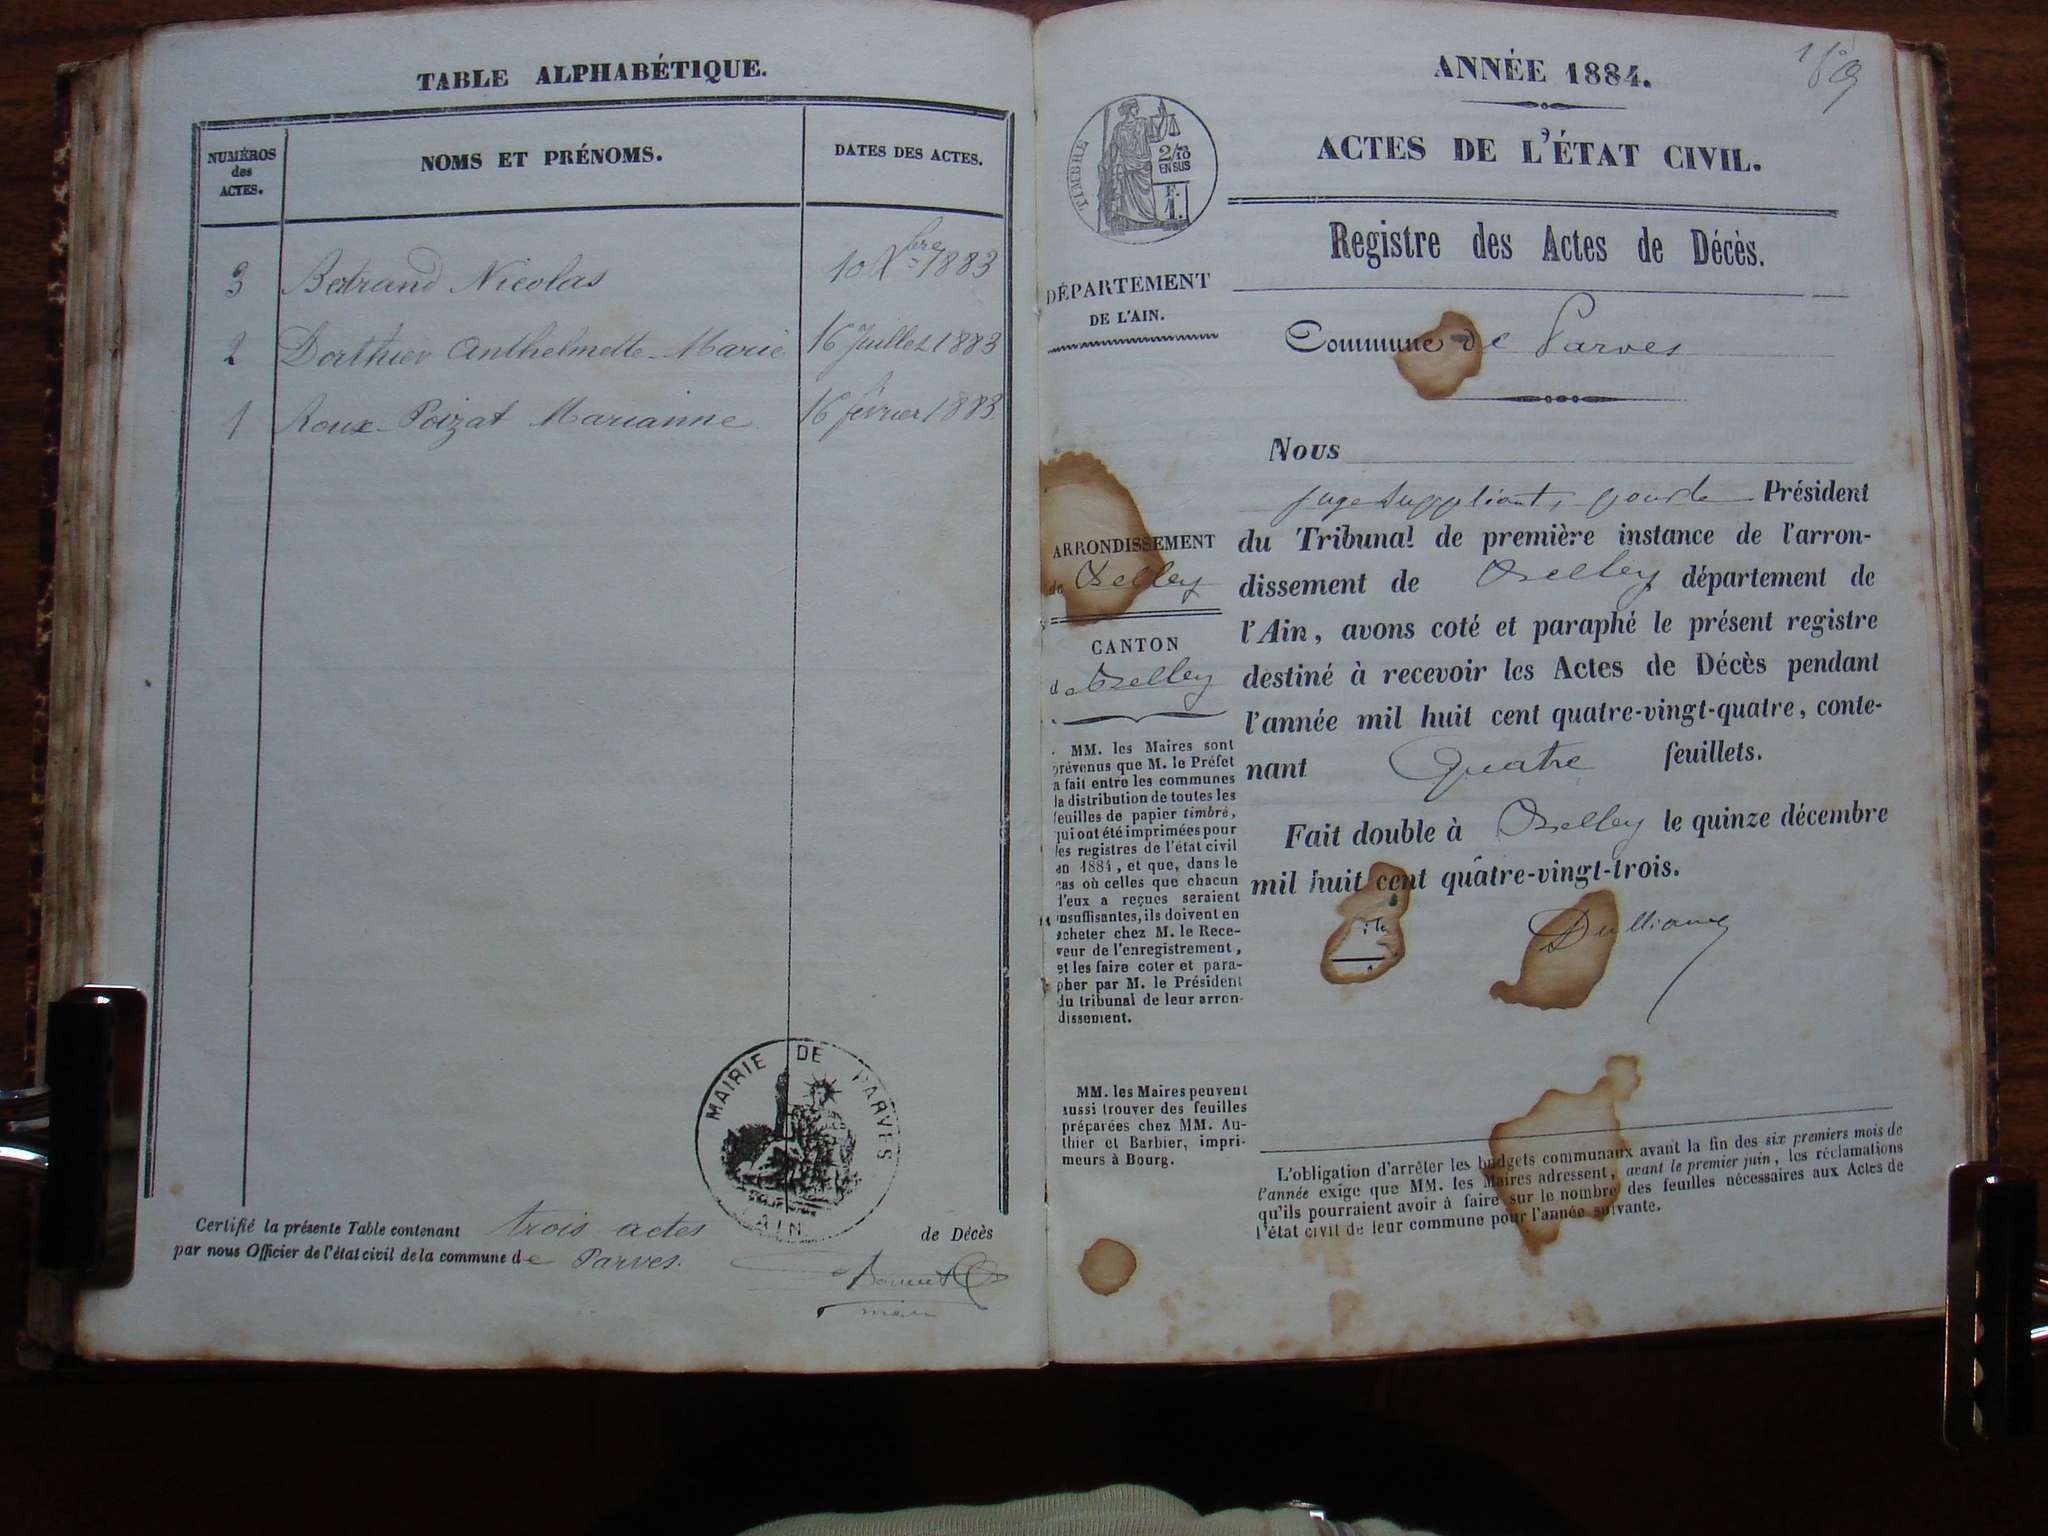 TABLE ALPHABÉTIQUE.
NUMÉROS
des
ACTES.
NOMS ET PRÉNOMS.
DATES DES ACTES.
3 Bertrand Nicolas 10 Xbre 1883
2 Dorthier Anthelmette Marie 16 Juillet 1883
1 Roux-Poizat Marianne 16 février 1883
MAIRIE DE PARVES
AIN
Certifié la présente Table contenant trois actes de Décès
par nous Officier de l'état civil de la commune de Parves.
maire
ANNÉE 1884.
ACTES DE L'ÉTAT CIVIL.
TIMBRE
2/10
EN SUS
F.
1.
Registre des Actes de Décès.
DÉPARTEMENT
DE L'AIN.
Commune de Parves
Nous
juge suppléant, pour le Président
du Tribunal de première instance de l'arron-
dissement de Belley département de
l'Ain, avons coté et paraphé le présent registre
destiné à recevoir les Actes de Décès pendant
l'année mil huit cent quatre-vingt-quatre, conte-
nant Quatre feuillets.
Fait double à Belley le quinze décembre
mil huit cent quatre-vingt-trois.
ARRONDISSEMENT
de Belley
CANTON
de Belley
MM. les Maires sont
prévenus que M. le Préfet
a fait entre les communes
la distribution de toutes les
feuilles de papier timbré,
qui ont été imprimées pour
les registres de l'état civil
en 1884, et que, dans le
cas où celles que chacun
d'eux a reçues seraient
insuffisantes, ils doivent en
acheter chez M. le Rece-
veur de l'enregistrement,
et les faire coter et para-
pher par M. le Président
du tribunal de leur arron-
dissement.
MM. les Maires peuvent
aussi trouver des feuilles
préparées chez MM. Au-
thier et Barbier, impri-
meurs à Bourg.
L'obligation d'arrêter les budgets communaux avant la fin des six premiers mois de
l'année exige que MM. les Maires adressent, avant le premier juin, les réclamations
qu'ils pourraient avoir à faire sur le nombre des feuilles nécessaires aux Actes de
l'état civil de leur commune pour l'année suivante.